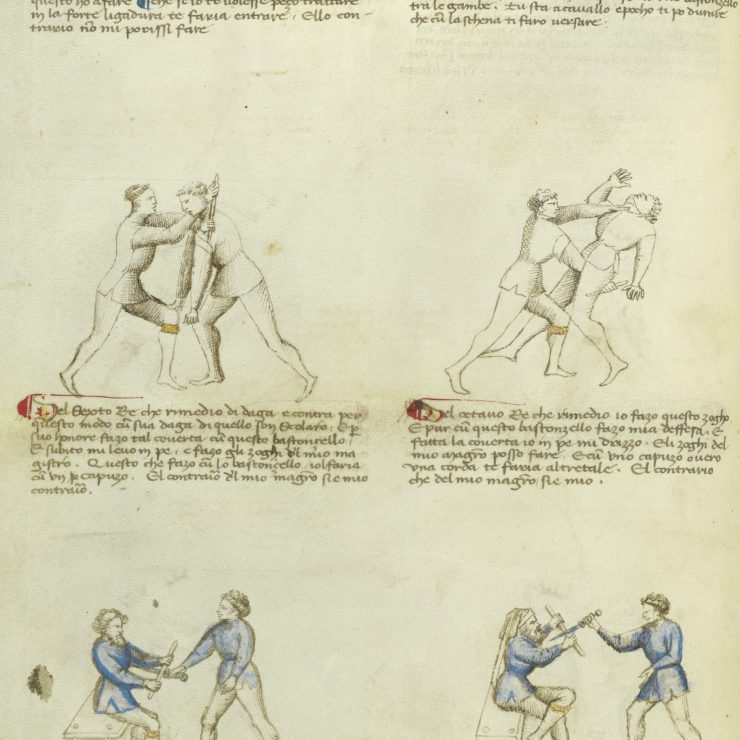 questo ho a fare che se io te volesse pezo trattare
in la forte ligadura te faria entrare, Ello con-
trario non mi porissi fare
bastonzello
tra le gambe. Tu sta a cavallo e pocho ti po durare
che cum la schena ti faro versare.
Del Sexto Re che rimedio di daga e contra per
questo modo cũ sua daga di quello son Scolaro, E p
suo honore fazo tal coverta cũ questo bastoncello,
E subito mi levo in pe, e fazo gli zoghi dl mio ma
gistro. Questo che fazo cũ lo bastoncello, iol faria
cũ un p capuzo. El contraio dl mio magro si e mio
contraio.
Del octavo Re che rimedio io fazo questo zogho
E pur cũ questo bastonzello fazo mia deffesa. E
fatta la coverta io in pe mi drizzo. E li zoghi del
mio magro posso fare, E cũ uno capuzo overo
una corda te faria altretale. El contrario
che del mio magro si e mio.